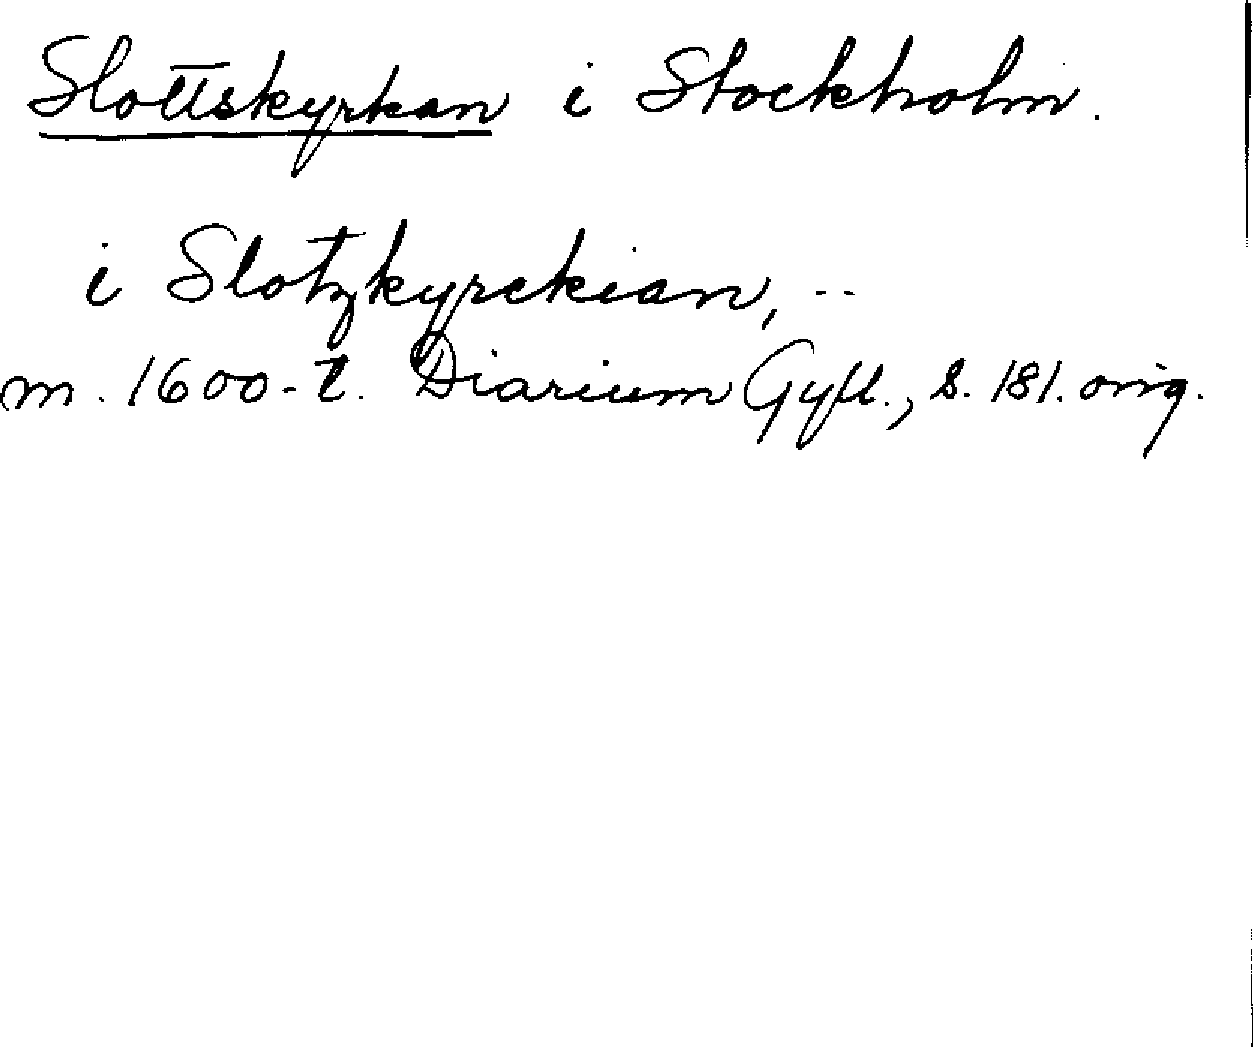 Slottskyrkan i Stockholm.
i Slotzkyrckian, --
m. 1600-t. Diarium Gyll., s. 181. orig.